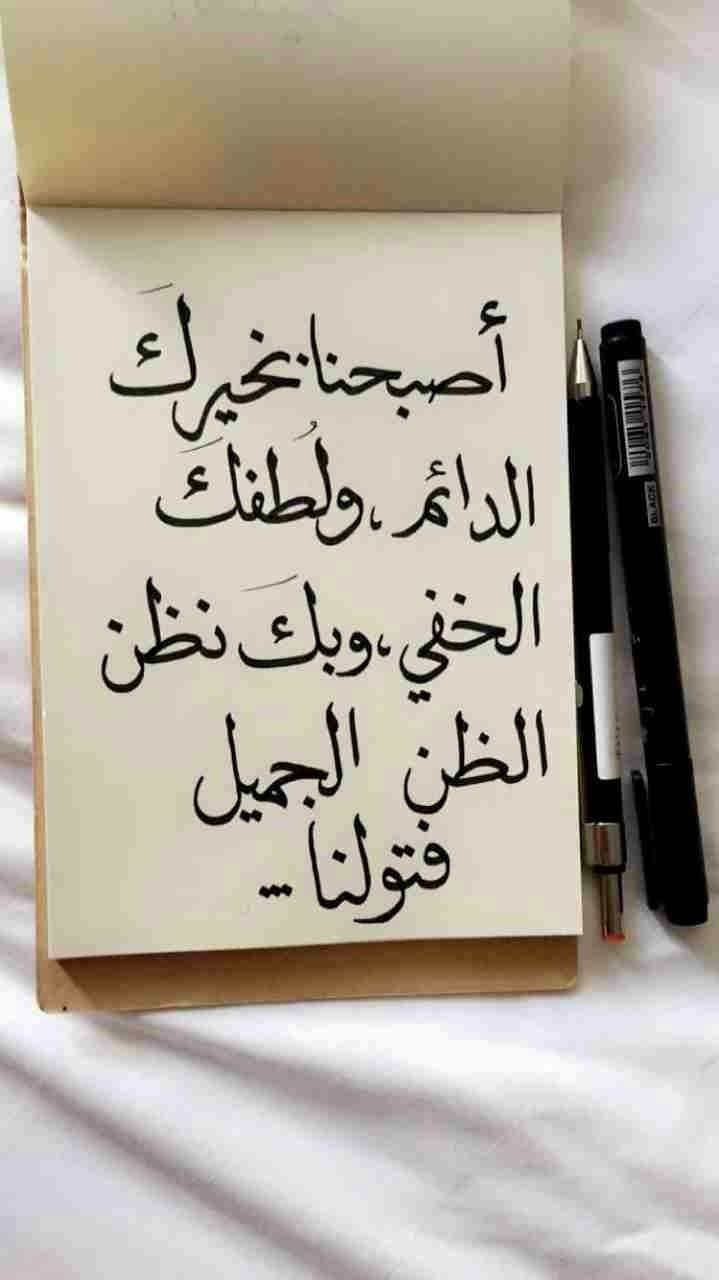 أصبحنا بخيركَ
الدائم ،ولُطفكَ
الخفي ،وبكَ نظن
الظن الجميل
فتولنا ...
BLACK